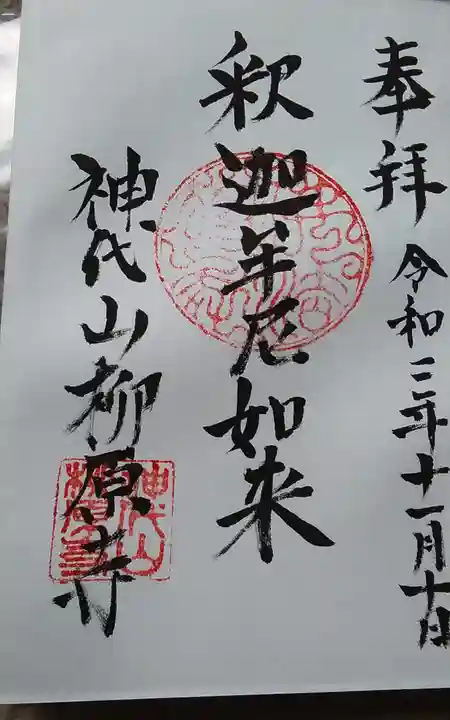 奉拝 令和三年十一月十日
釈迦牟尼如来
神代山柳原寺
神代山